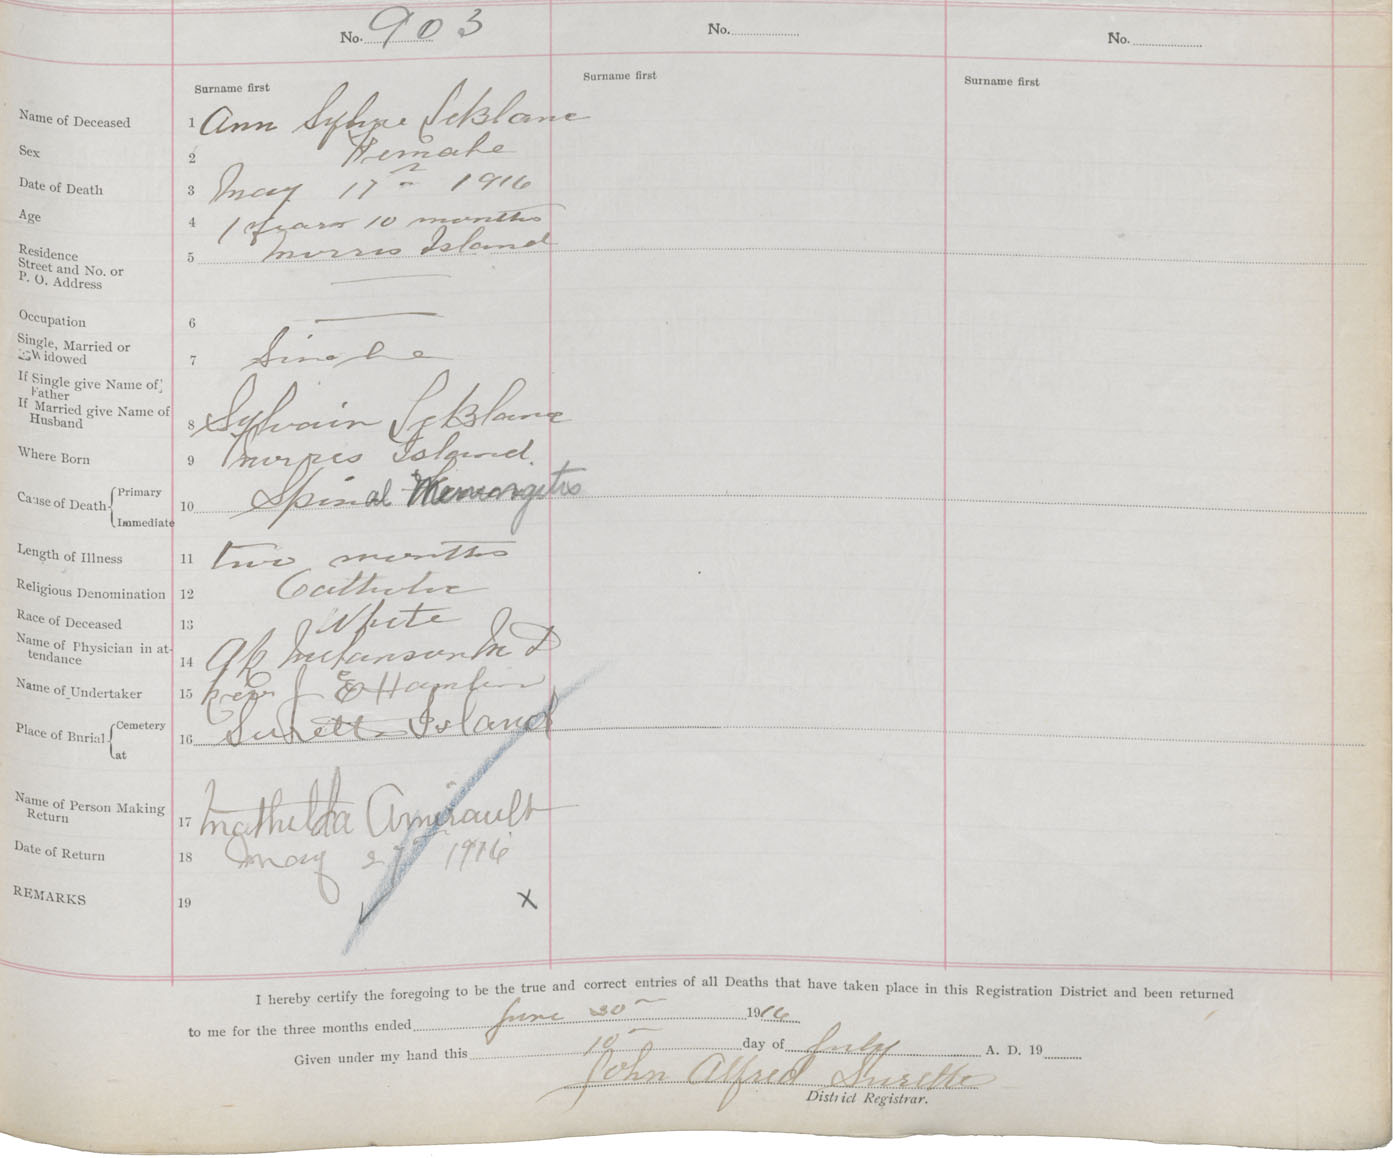 No. 903 No. No.
Surname first Surname first Surname first
Name of Deceased 1 Ann LeBlanc
Sex 2 Female
Date of Death 3 May 17th 1916
Age 4 1 years 10 months
Residence
Street and No. or
P. O. Address 5 Morris Island
Occupation 6
Single, Married or
Widowed 7 Single
If Single give Name of
Father
If Married give Name of
Husband 8 Sylvain LeBlanc
Where Born 9 Morris Island.
Cause of Death Primary
Immediate 10 Spinal
Length of Illness 11 two months
Religious Denomination 12 Catholic
Race of Deceased 13 White
Name of Physician in at-
tendance 14 Melanson M D
Name of Undertaker 15 Rev J E Hamlin
Place of Burial Cemetery
at 16 Surette Island
Name of Person Making
Return 17 Mathilda Amirault
Date of Return 18 May 27th 1916
REMARKS 19 X
I hereby certify the foregoing to be the true and correct entries of all Deaths that have taken place in this Registration District and been returned
to me for the three months ended June 30th 1916
Given under my hand this 10th day of July A. D. 19
John Alfred Surette
District Registrar.